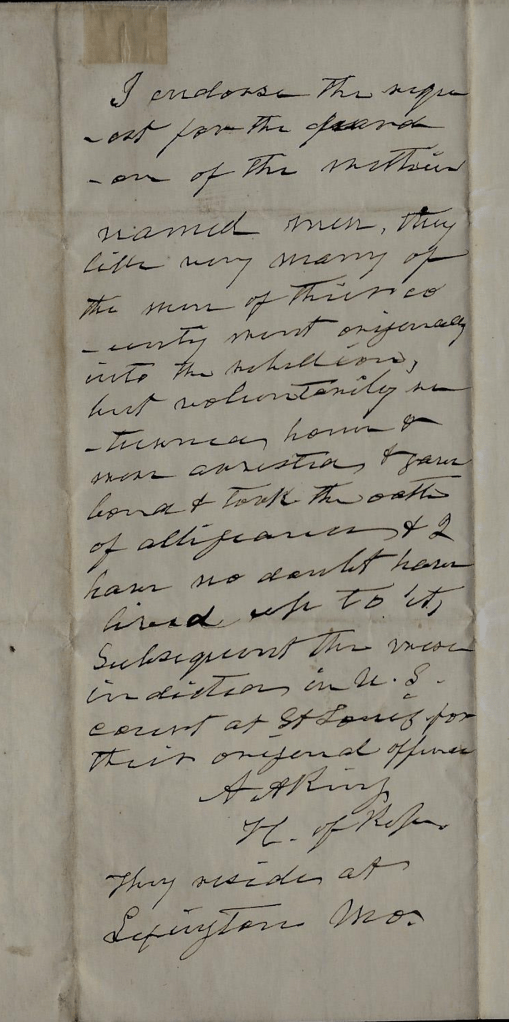 I endorse the requ
-est for the pard
-on of the within
named men, they
like very many of
the men of their co
-unty went originally
into the rebellion,
but voluntarily re
-turned home &
were arrested & gave
bond & took the oath
of allegiance & I
have no doubt have
lived up to it,
Subsequent they were
indicted in U. S.
court at St Louis for
their original offence
A A King
H. of Reps
They reside at
Lexington Mo.